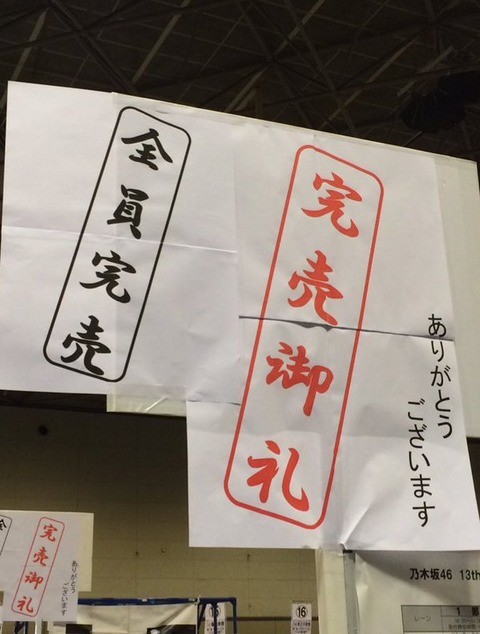 全員完売
完売御礼
ありがとう
ございます
完売御礼
ありがとう
ございます
乃木坂46 13th
レーン
1
15
16